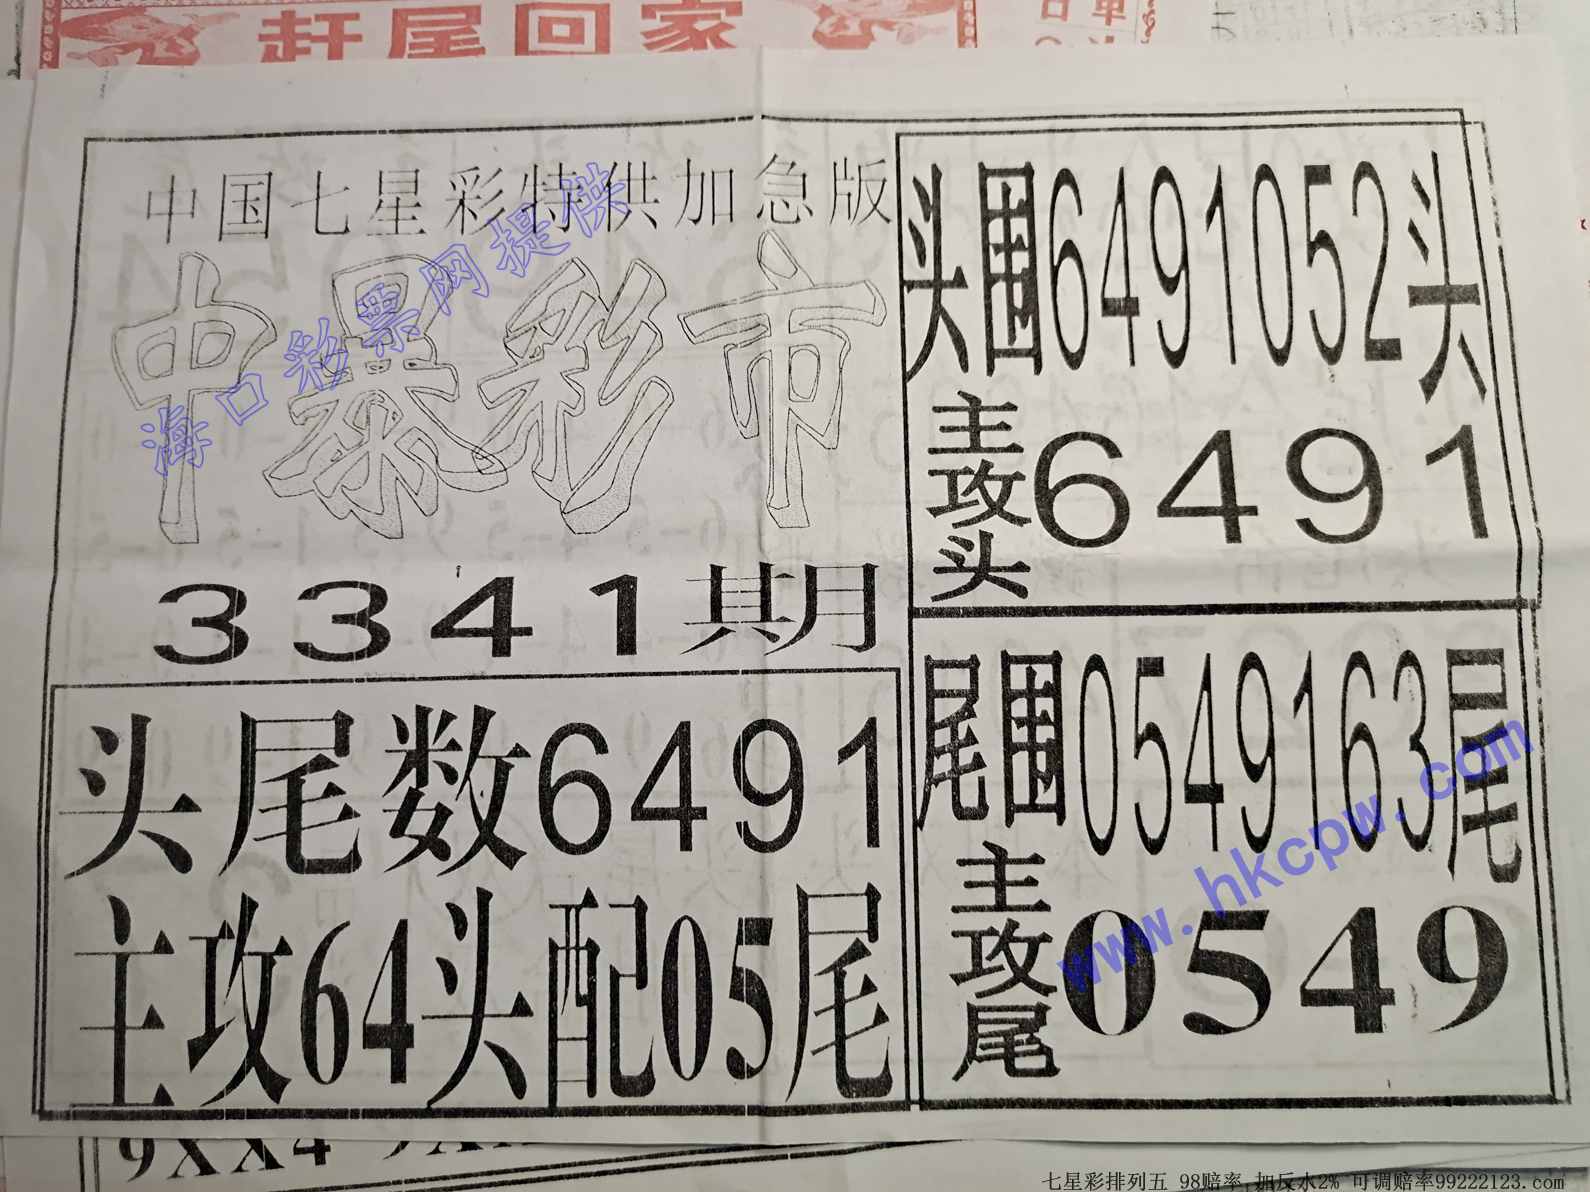 赶尾回家
中国七星彩特供加急版
中暴彩市
海口彩票网提供
3341期
头尾数6491
主攻64头配05尾
头围6491052头
主攻头6491
尾围0549163尾
主攻尾0549
www.hkcpw.com
9XX4
七星彩排列五 98赔率 加反水2% 可调赔率99222123.com